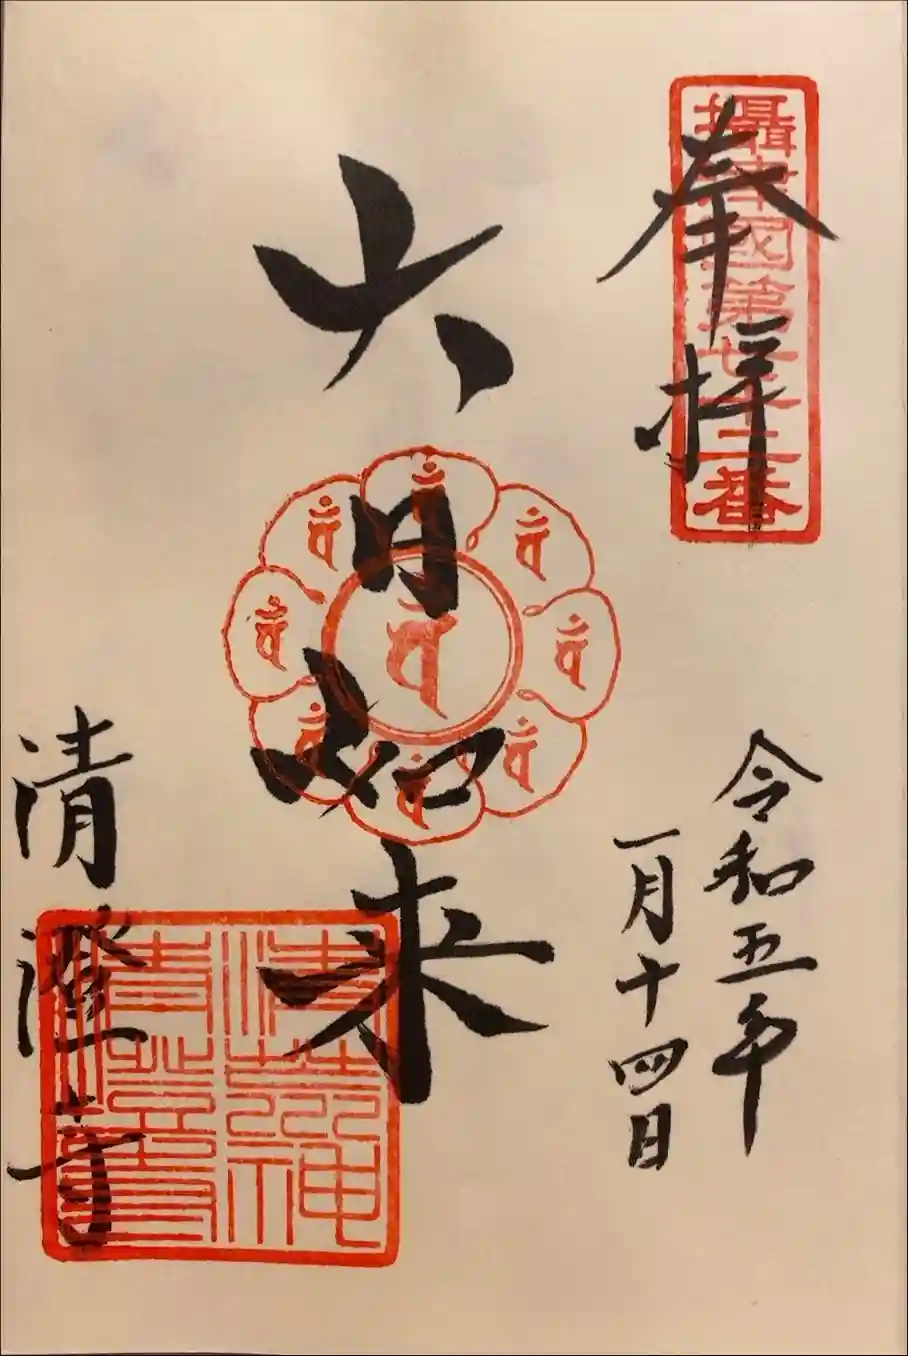 奉拝
攝津國第七十二番
令和五年
一月十四日
大日如来
清澄寺
清荒神
清澄寺